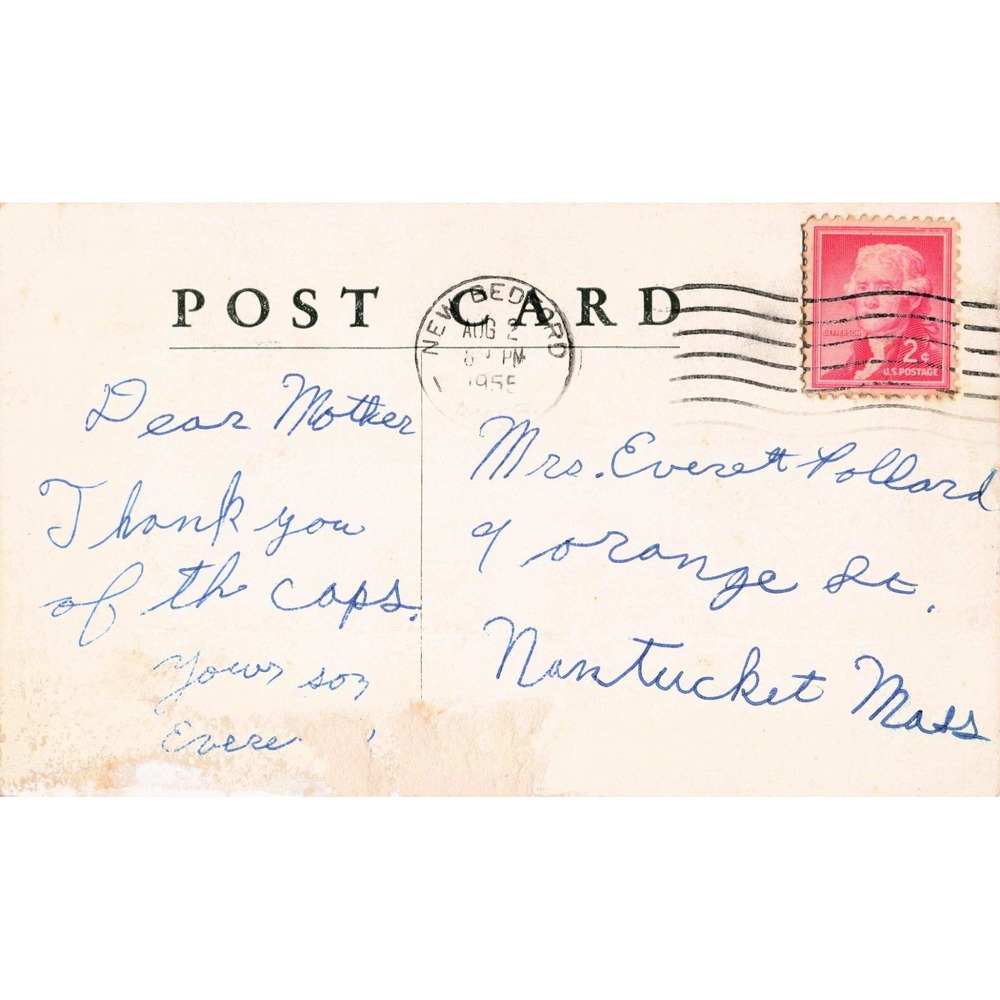 POST CARD
NEW BEDFORD
AUG 2
PM
1955
JEFFERSON
2¢
U.S. POSTAGE
Dear Mother
Thank you
of th caps.
Yours son
Evere
Mrs. Everett Pollard
9 orange St.
Nantucket Mass